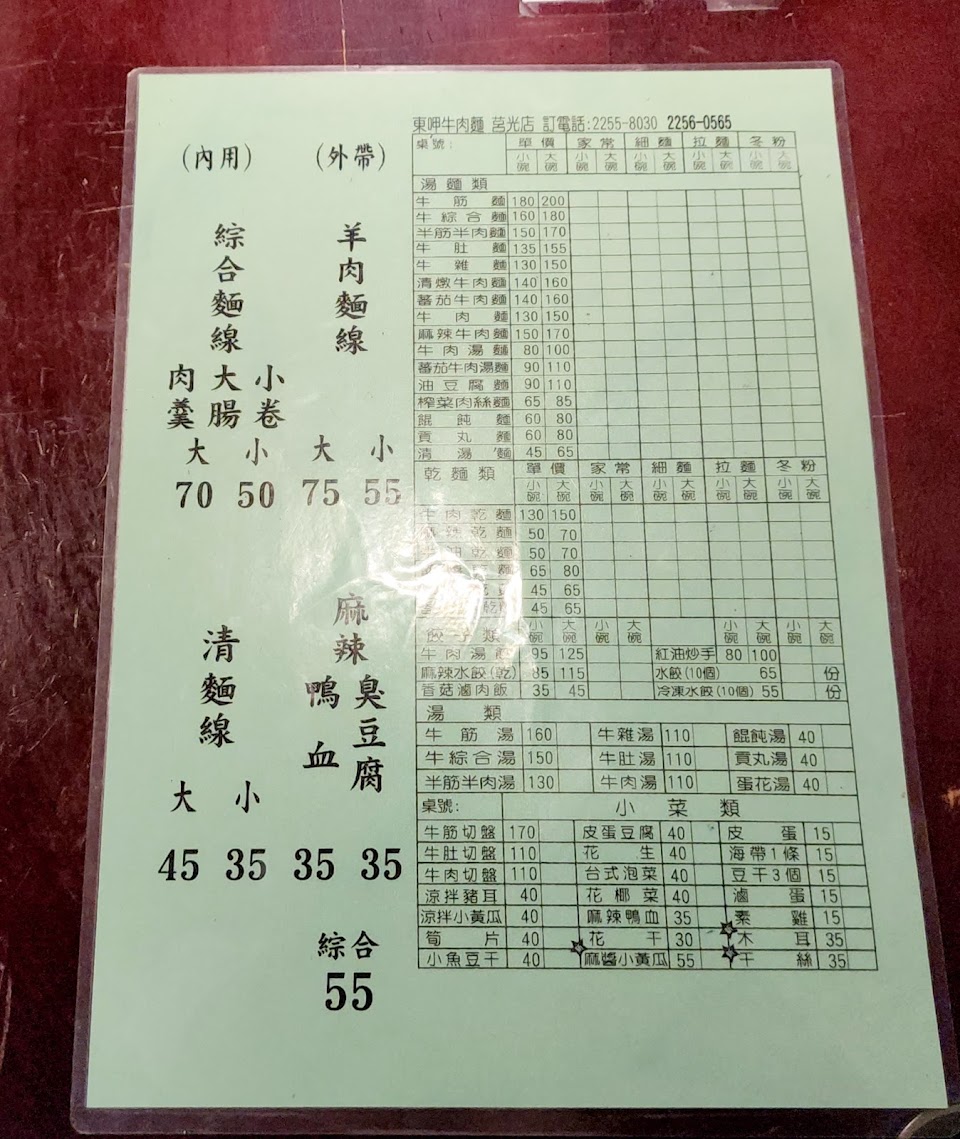 (內用) (外帶)
綜合麵線
肉羹 大腸 小卷
大 小
70 50
羊肉麵線
大 小
75 55
清麵線
大 小
45 35
麻辣鴨血 臭豆腐
35 35
綜合
55
東呷牛肉麵 莒光店 訂電話:2255-8030 2256-0565
桌號: 單價 家常 細麵 拉麵 冬粉
小碗 大碗 小碗 大碗 小碗 大碗 小碗 大碗 小碗 大碗
湯麵類
牛筋麵 180 200
牛綜合麵 160 180
半筋半肉麵 150 170
牛肚麵 135 155
牛雜麵 130 150
清燉牛肉麵 140 160
蕃茄牛肉麵 140 160
牛肉麵 130 150
麻辣牛肉麵 150 170
牛肉湯麵 80 100
蕃茄牛肉湯麵 90 110
油豆腐麵 90 110
榨菜肉絲麵 65 85
餛飩麵 60 80
貢丸麵 60 80
清湯麵 45 65
乾麵類 單價 家常 細麵 拉麵 冬粉
小碗 大碗 小碗 大碗 小碗 大碗 小碗 大碗 小碗 大碗
牛肉乾麵 130 150
麻辣乾麵 50 70
牛油乾麵 50 70
麵 65 80
45 65
乾 45 65
餃子類 小碗 大碗 小碗 大碗 小碗 大碗 小碗 大碗
牛肉湯餃 95 125 紅油炒手 80 100
麻辣水餃(乾) 85 115 水餃(10個) 65 份
香菇滷肉飯 35 45 冷凍水餃(10個) 55 份
湯類
牛筋湯 160 牛雜湯 110 餛飩湯 40
牛綜合湯 150 牛肚湯 110 貢丸湯 40
半筋半肉湯 130 牛肉湯 110 蛋花湯 40
桌號: 小菜類
牛筋切盤 170 皮蛋豆腐 40 皮蛋 15
牛肚切盤 110 花生 40 海帶1條 15
牛肉切盤 110 台式泡菜 40 豆干3個 15
涼拌豬耳 40 花椰菜 40 滷蛋 15
涼拌小黃瓜 40 麻辣鴨血 35 素雞 15
筍片 40 花干 30 木耳 35
小魚豆干 40 麻醬小黃瓜 55 干絲 35